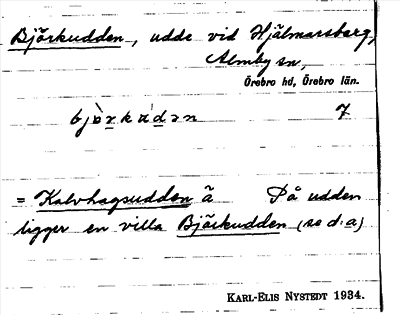 Björkudden, udde vid Hjälmarsberg,
Almby sn,
Örebro hd, Örebro län.
bjö̀rkuden 7
= Kalvhagsudden å På udden
ligger en villa Björkudden (se d:a)
KARL-ELIS NYSTEDT 1934.